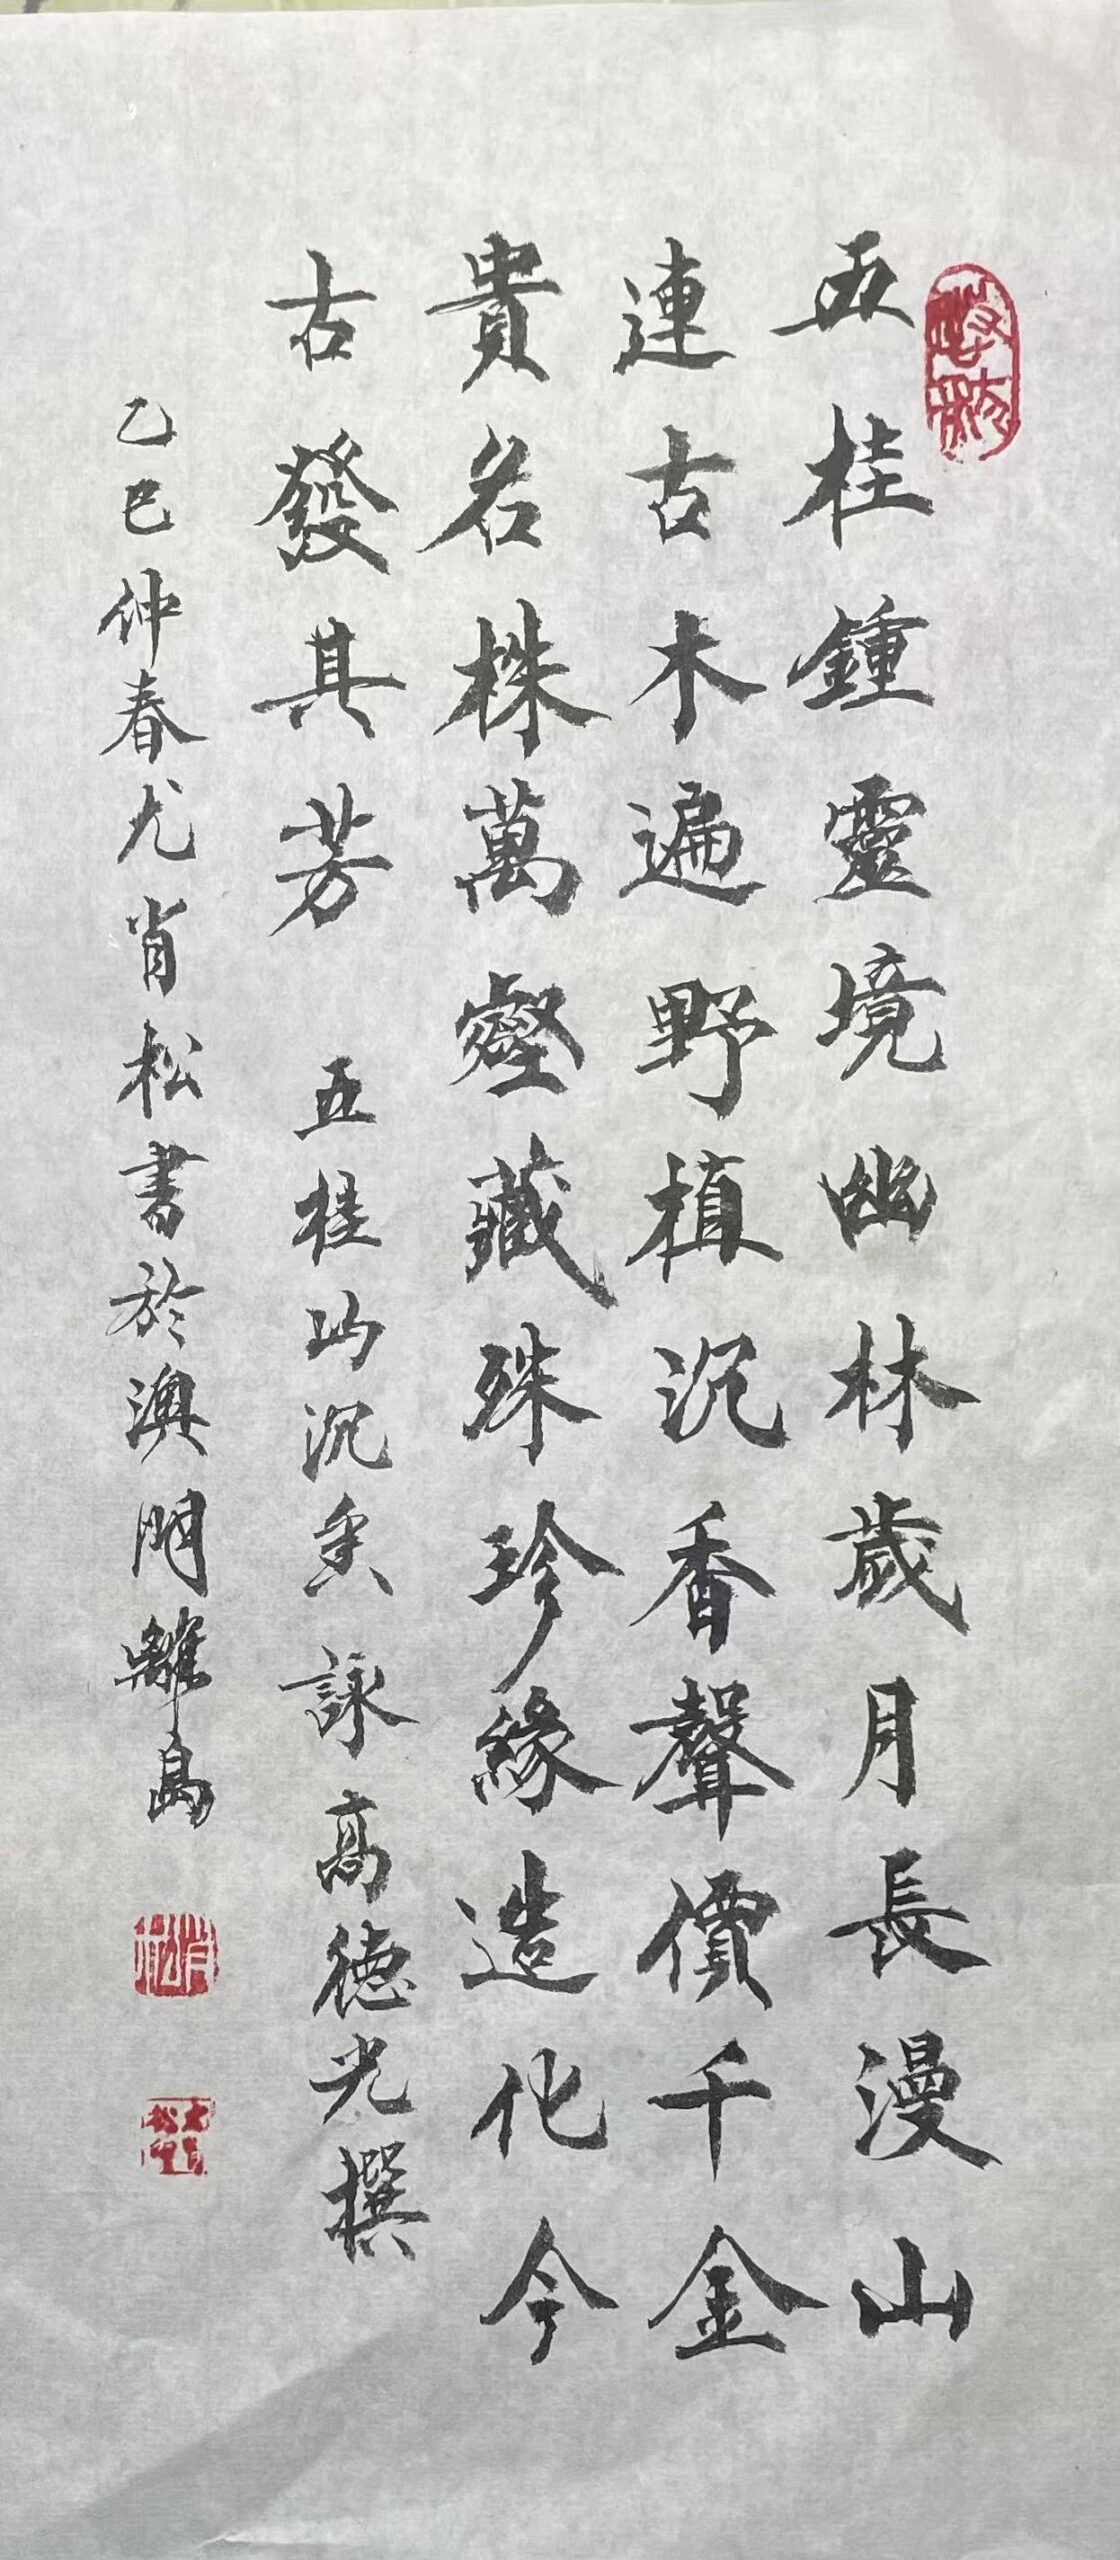 五桂鍾靈境幽林歲月長漫山
連古木遍野植沉香聲價千金
貴名株萬壑藏殊珍緣造化今
古發其芳 五桂山沉香詠高德光撰
乙巳仲春尤肖松書於澳門離島